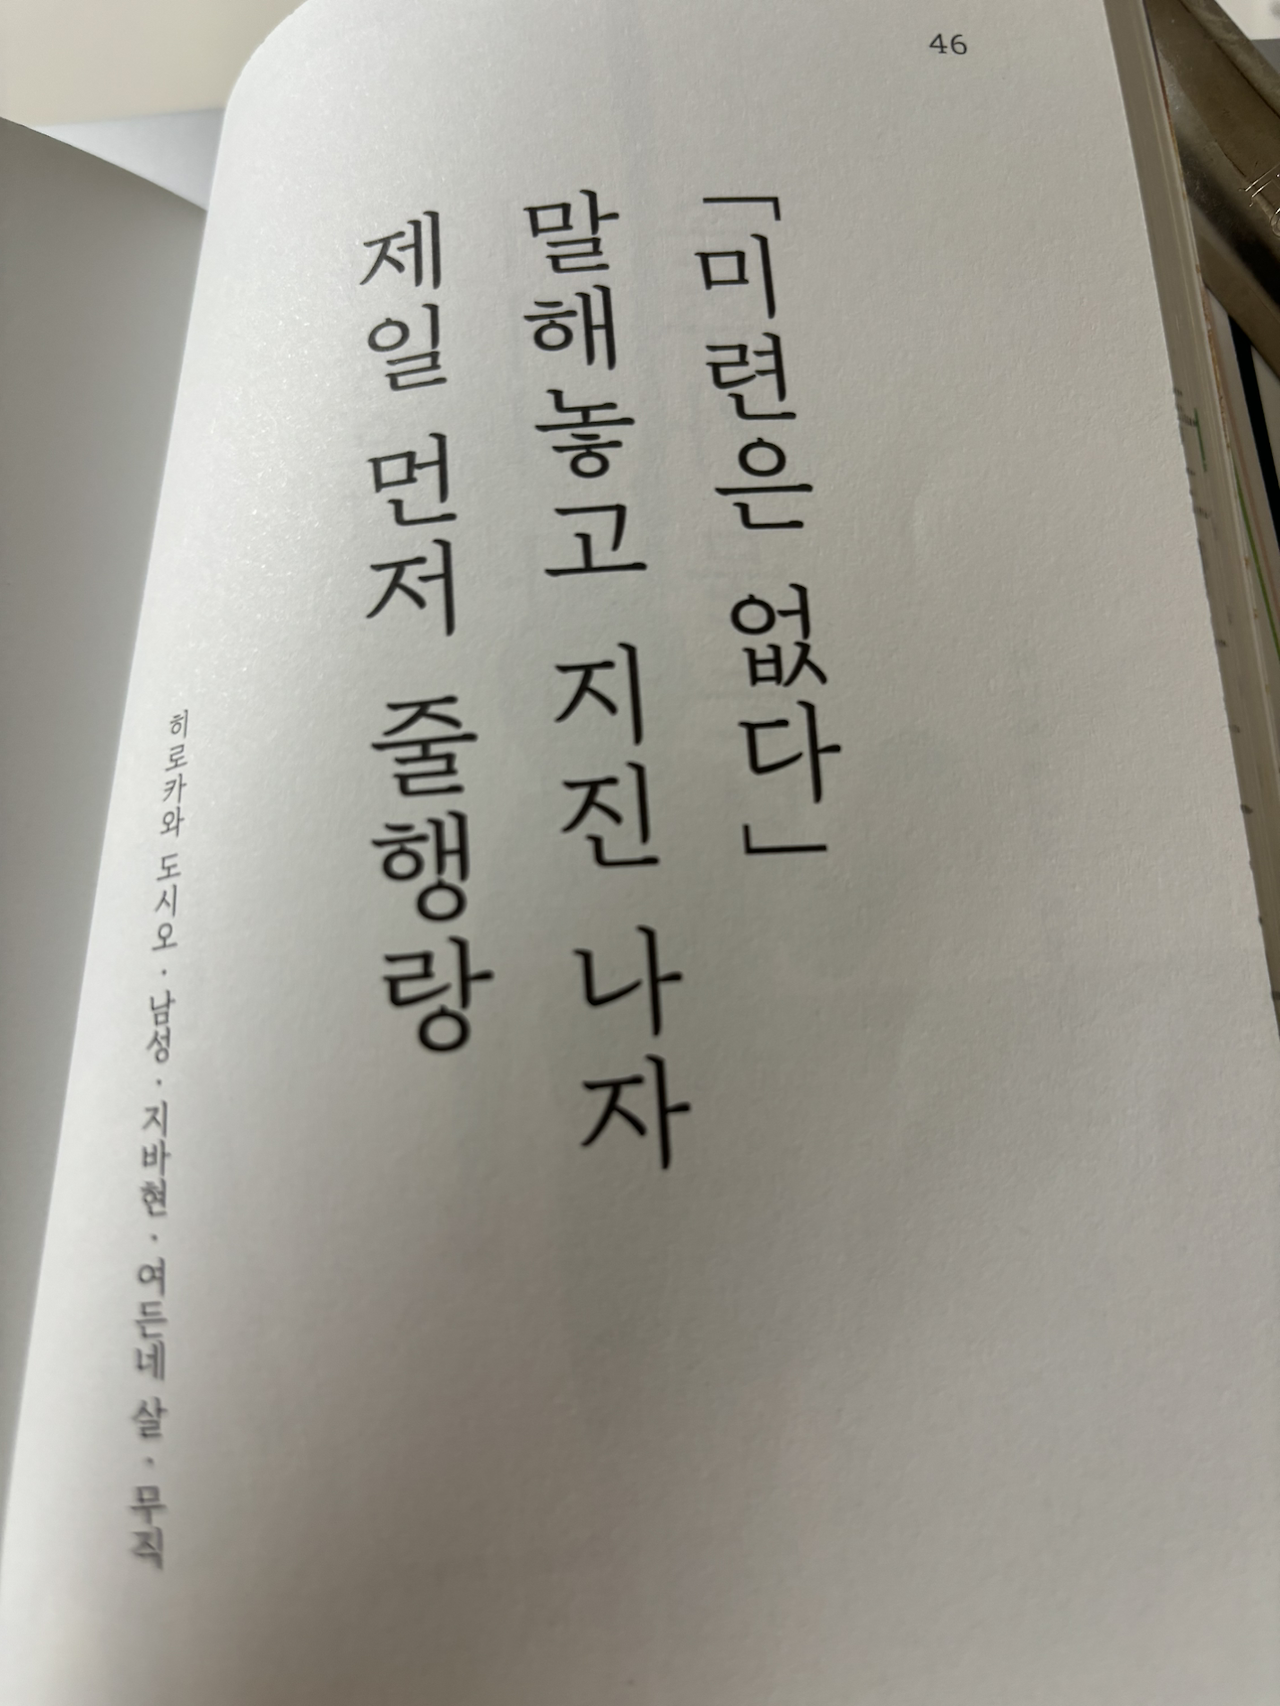 46
「미련은 없다」
말해놓고 지진 나자
제일 먼저 줄행랑
히로카와 도시오·남성·지바현·여든네 살·무직